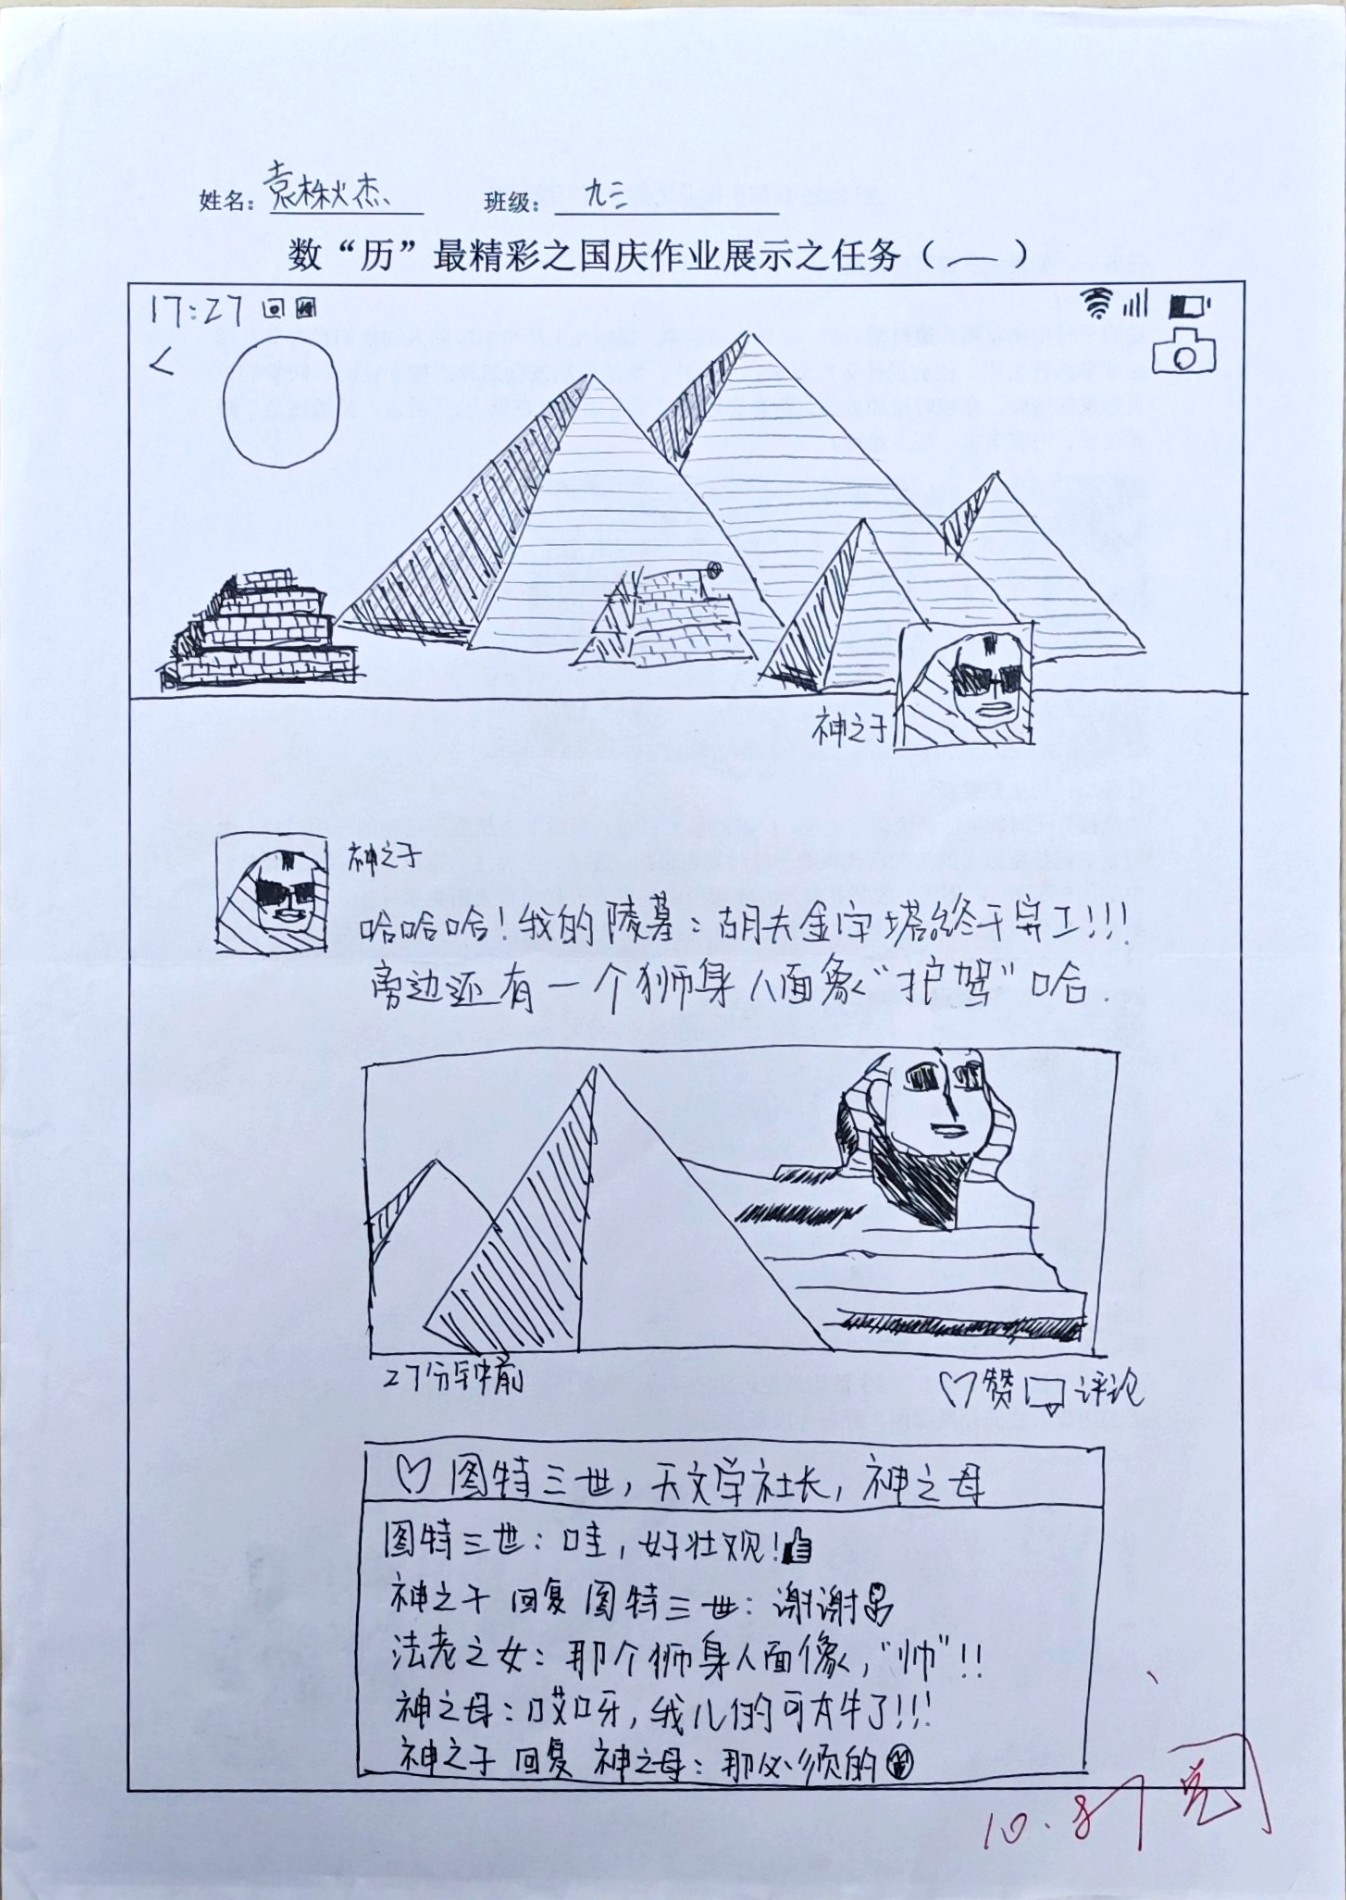 姓名：袁株火杰 班级：九三
数“历”最精彩之国庆作业展示之任务（一）
17:27
神之子
神之子
哈哈哈！我的陵墓：胡夫金字塔终于完工！！！
旁边还有一个狮身人面象“护驾”哈.
27分钟前
赞 评论
图特三世，天文学社长，神之母
图特三世：哇，好壮观！
神之子 回复 图特三世：谢谢
法老之女：那个狮身人面像，“帅”！！
神之母：哎呀，我儿的可太牛了！！！
神之子 回复 神之母：那必须的
10.8